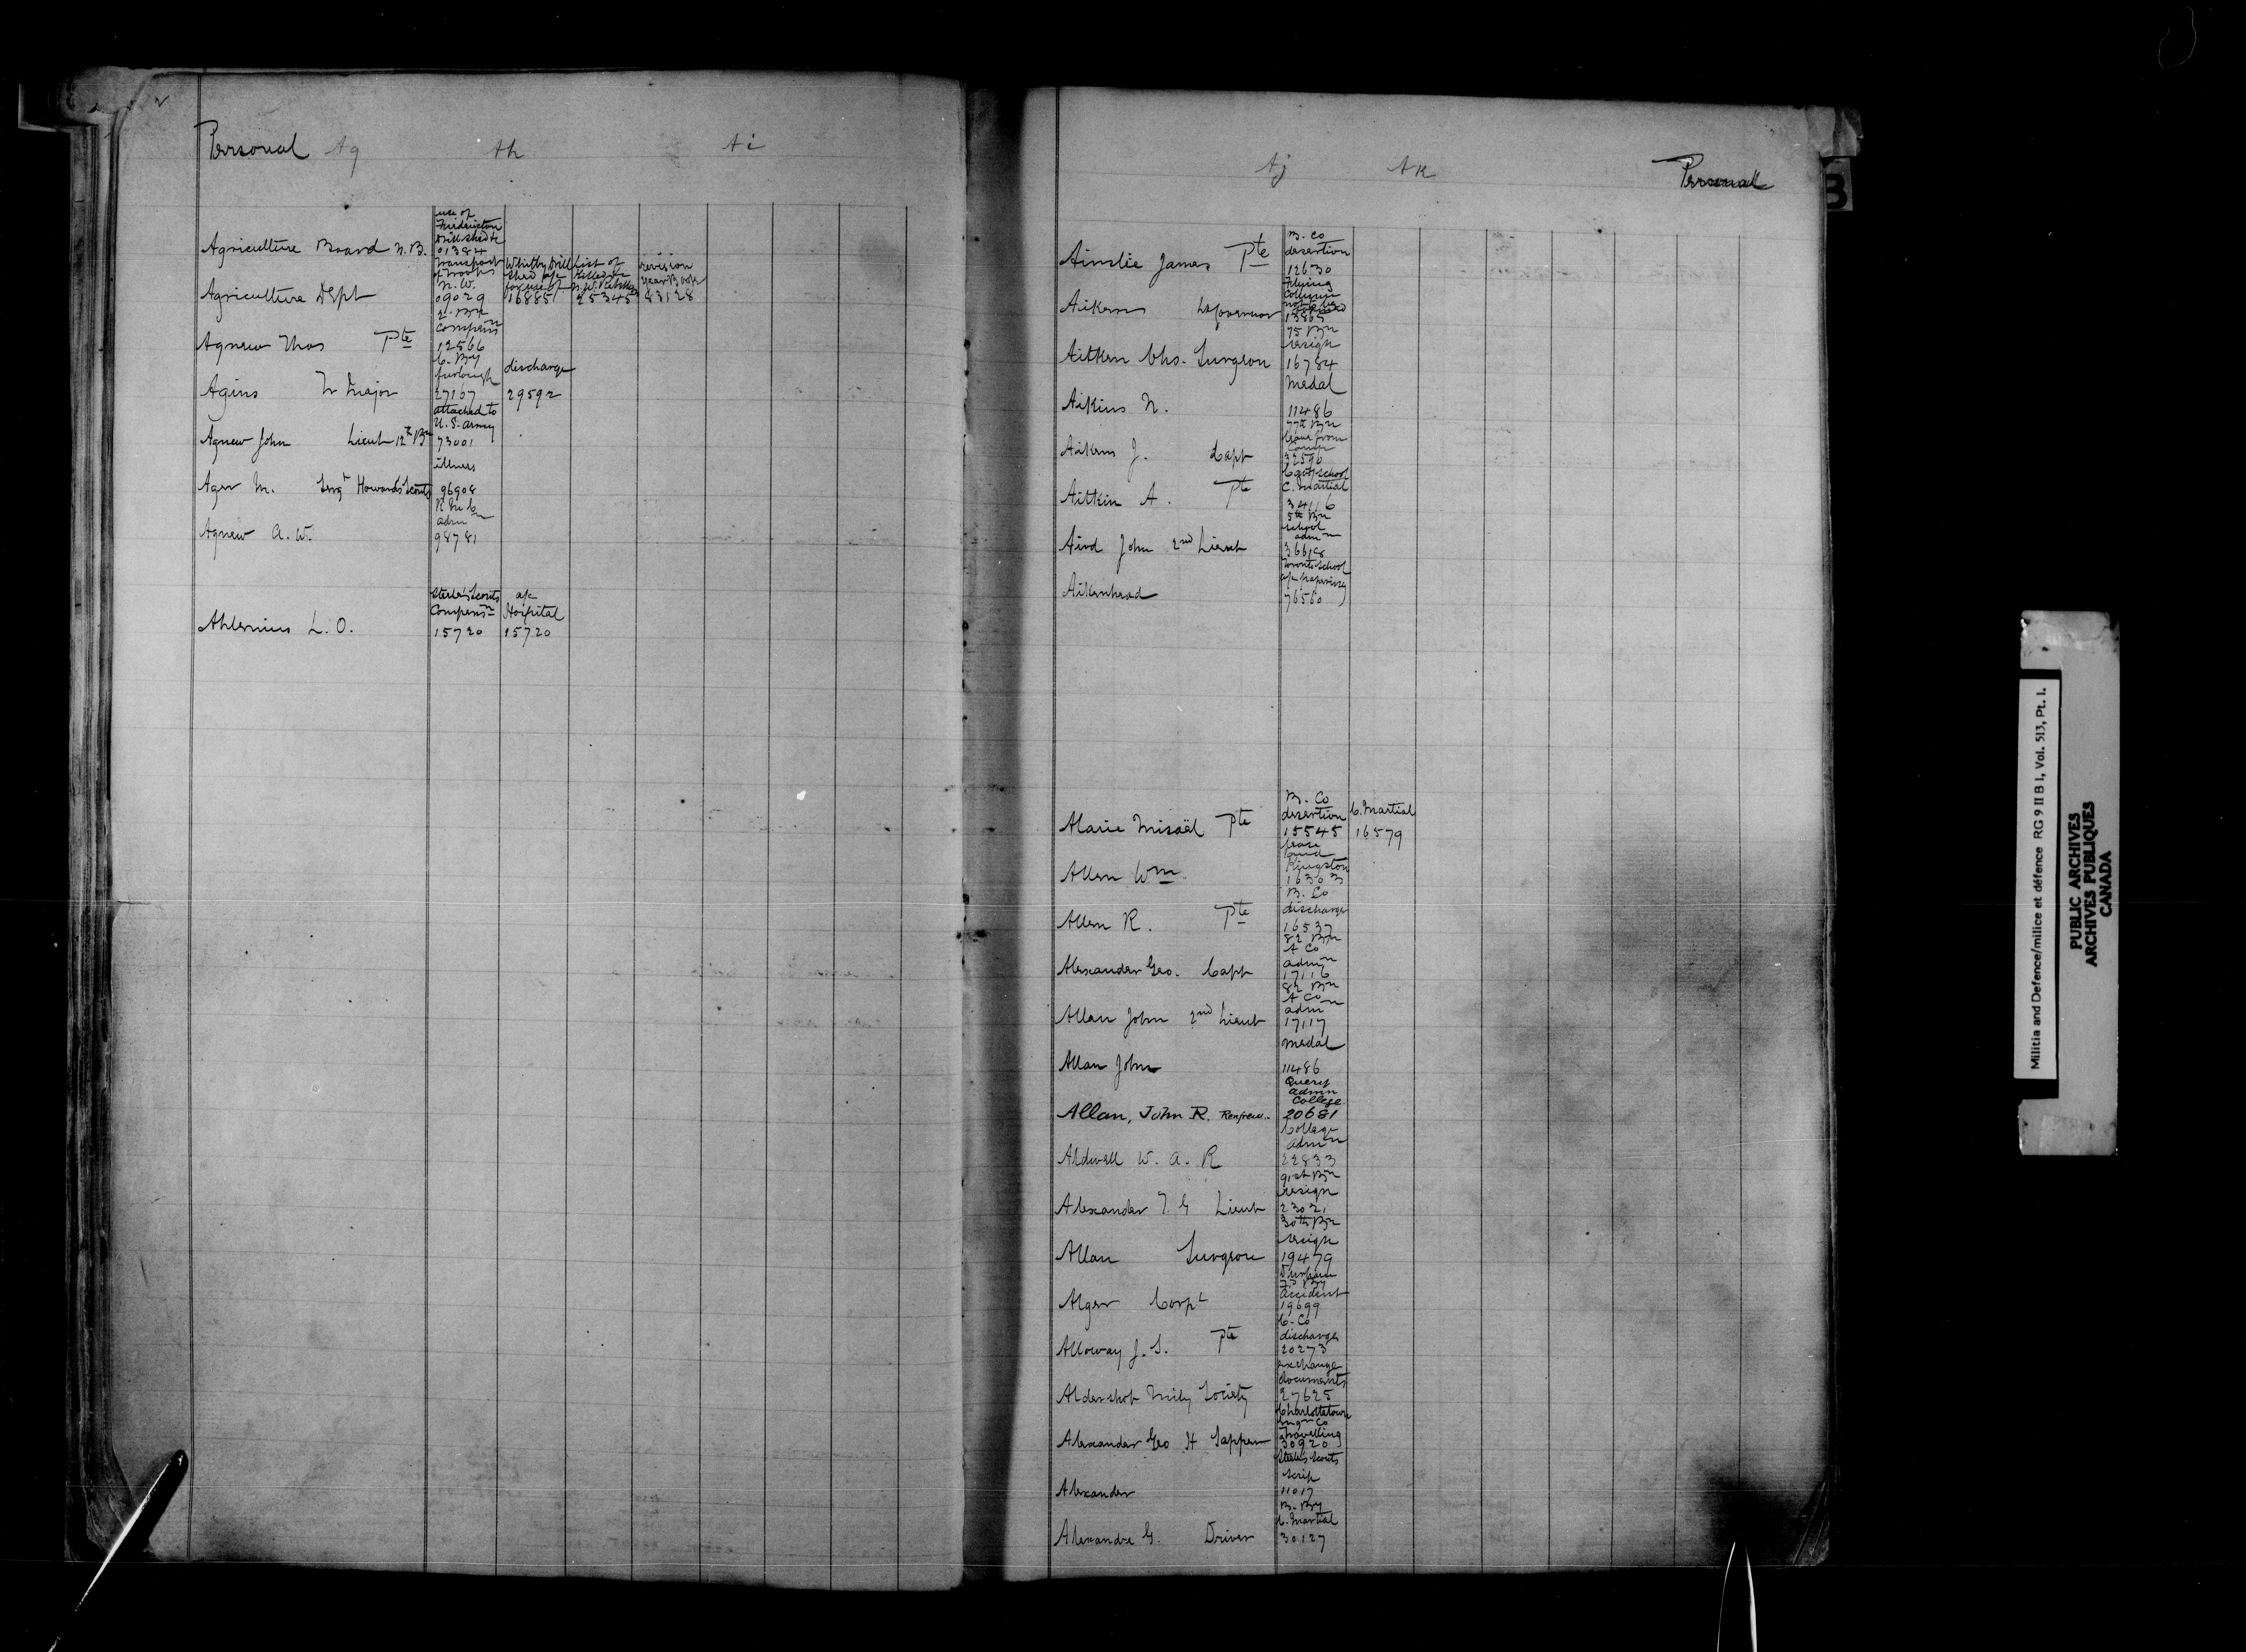 Personal Ag Ah Ai
Agriculture Board N.B.
use of
Fredericton
Drill Shed &c
01384
Agriculture Dept
Transport
of Troops
N. W.
09029
Whitby Drill
Shed
for use of
16885
List of
Killed in
N.W. Rebellion
25345
revision
Year Book
83128
Agnew Thos Pte
2. Bn
Compensn
12566
Agins Tr Major
C. By
furlough
27167
discharge
29592
Agnew John Lieut 12th Bn
attached to
U. S. army
73001
Ager M. Sergt Howard's Scouts
illness
96908
Agnew A. W.
admn
98781
Ahlenius L. O.
Steele's Scouts
Compensn
15720
a/c
Hospital
15720
Aj Ak Personal
Ainslie James Pte
B. Co
desertion
12630
Aikens Lt Governor
Flying
Column
not to be
13865
Aitken Chs. Surgeon
75 Bn
resign
16784
Aikins N.
Medal
11486
Aikens J. Capt
77th Bn
leave from
Camp
32596
Aitkin A. Pte
Cavy School
C. Martial
34116
Aird John 2nd Lieut
5th Bn
school
admn
36618
Aikenhead
Toronto School
a/c papering
76560
Alarie Misaël Pte
B. Co
desertion
15545
C. Martial
16579
Allen Wm
lease
land
Kingston
16303
Allen R. Pte
B. Co
discharge
16537
Alexander Geo. Capt
82 Bn
A Co
admn
17116
Allan John 2nd Lieut
82 Bn
A Co
admn
17117
Allan John
medal
11486
Allan, John R. Renfrew..
Query
admn
College
20681
Aldwell W. A. R
College
admn
22833
Alexander T. G Lieut
91st Bn
resign
23021
Allan Surgeon
30th Bn
resign
19479
Alger Corpl
Durham
Fd By
accident
19699
Alloway J. S. Pte
C. Co
discharge
20273
Aldershot Mily Society
exchange
documents
27625
Alexander Geo H Sapper
Charlottetown
Engn Co
Travelling
30920
Alexander
Steele's Scouts
scrip
11017
Alexandre G. Driver
B. By
C. Martial
30127
B
Militia and Defence/milice et défence RG 9 II B 1, Vol. 513, Pt. 1.
PUBLIC ARCHIVES
ARCHIVES PUBLIQUES
CANADA